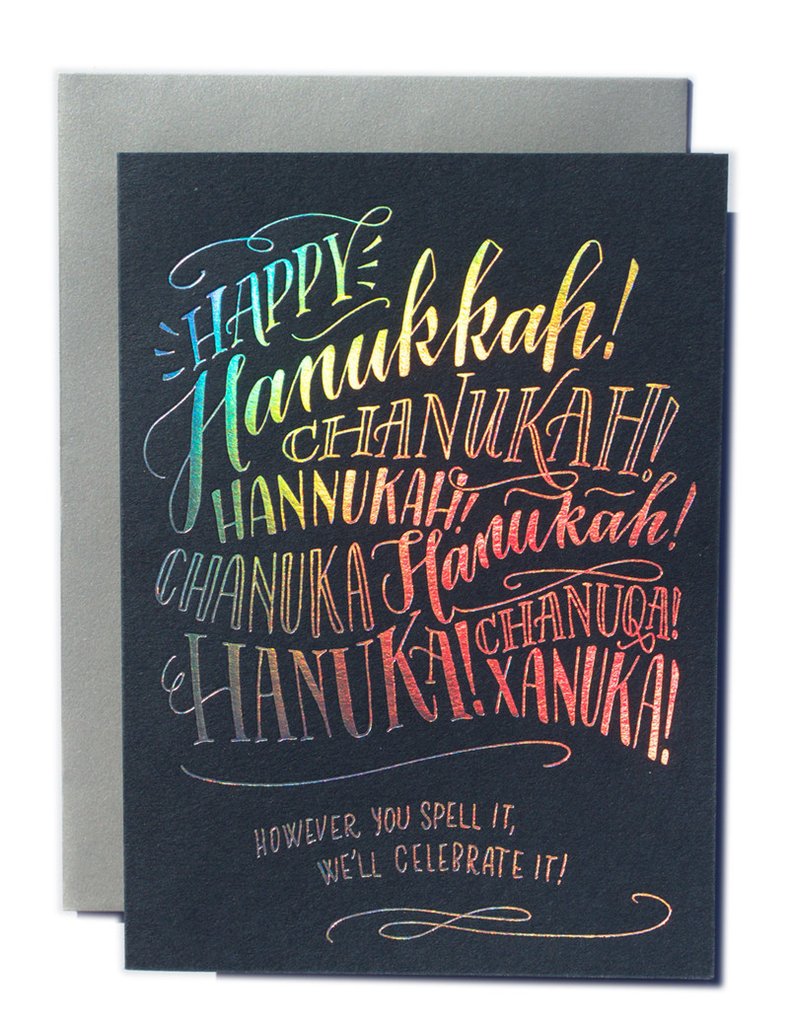 HAPPY
Hanukkah!
CHANUKAH!
HANNUKAH!
Hanukah!
CHANUKA
CHANUQA!
HANUKA!
XANUKA!
HOWEVER YOU SPELL IT,
WE'LL CELEBRATE IT!